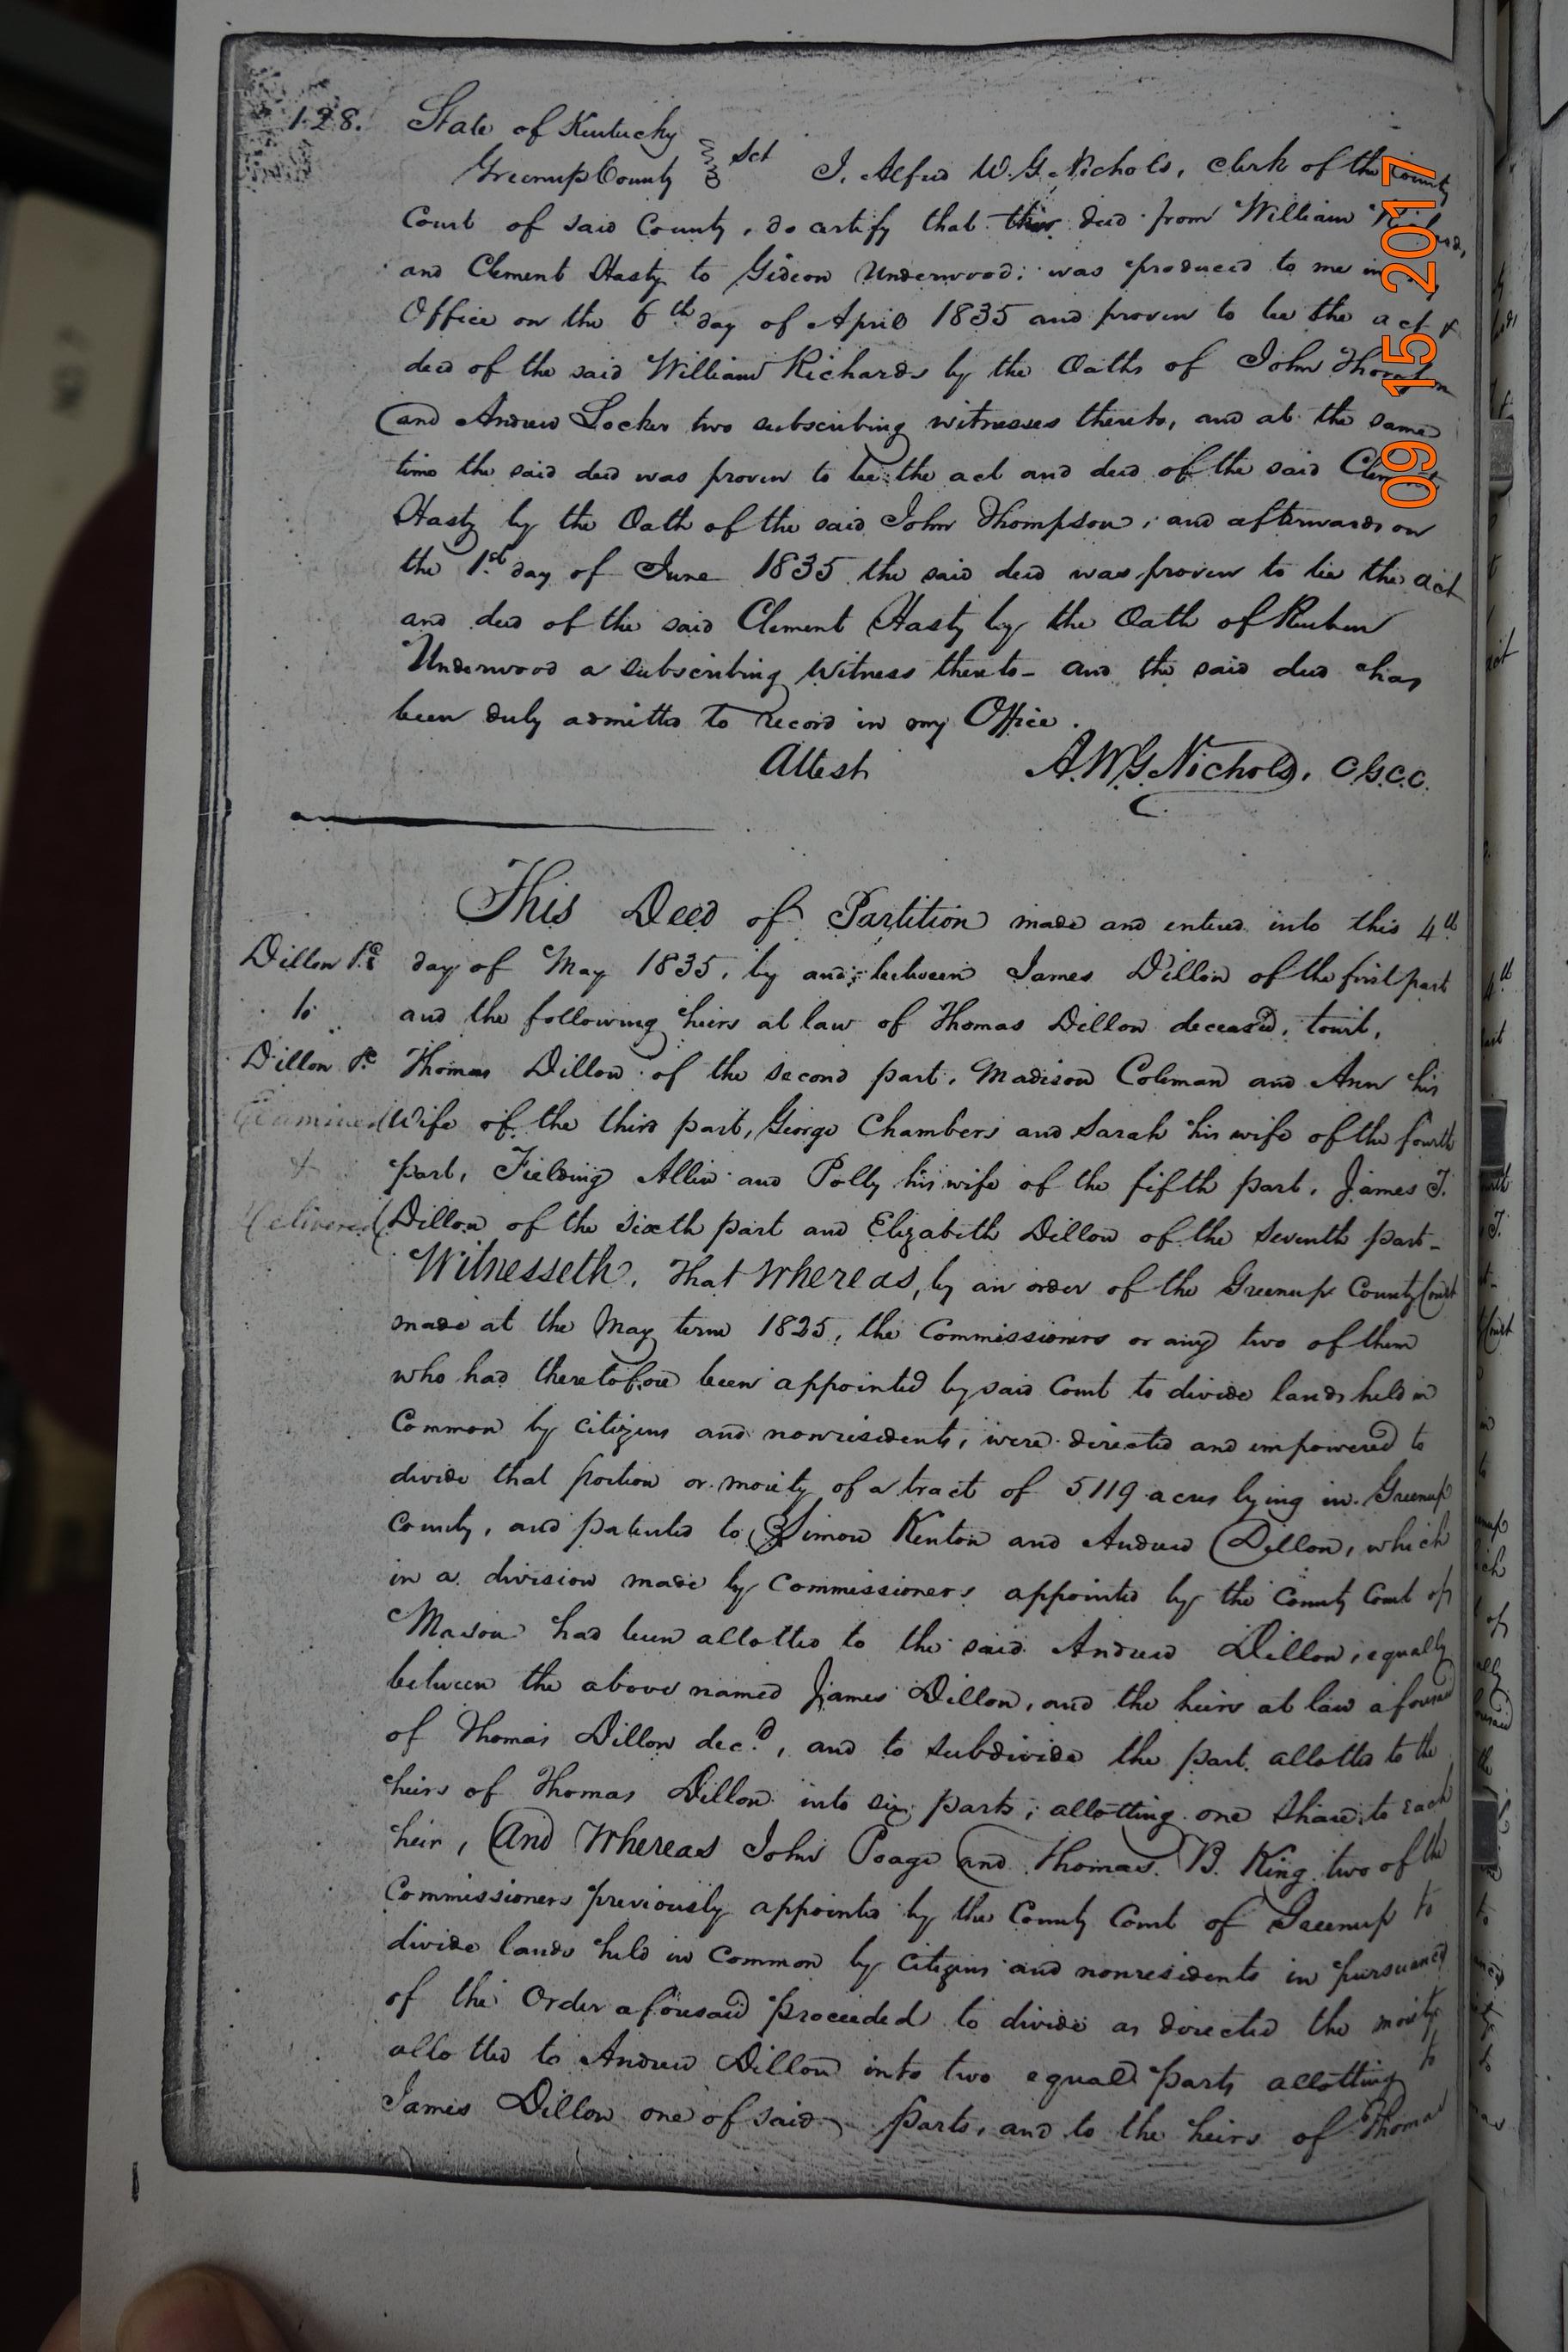 128. State of Kentucky
Greenup County Sct I, Alfred W. G. Nichols, clerk of the County
Court of said County, do certify that this deed from William
and Clement Hasty to Gideon Underwood; was produced to me in
Office on the 6th day of April 1835 and proven to be the act &
deed of the said William Richards by the Oaths of John
and Andrew Locker two subscribing witnesses thereto, and at the same
time the said deed was proven to be the act and deed of the said Clement
Hasty by the Oath of the said John Thompson; and afterwards on
the 1st day of June 1835 the said deed was proven to be the act
and deed of the said Clement Hasty by the Oath of Reuben
Underwood a subscribing Witness thereto- and the said deed has
been duly admitted to record in my Office.
Attest A.W.G. Nichols, C.G.C.C.
This Deed of Partition made and entered into this 4th
Dillon &c day of May 1835, by and between James Dillon of the first part
to and the following heirs at law of Thomas Dillon deceased, towit,
Dillon &c Thomas Dillon of the second part, Madison Coleman and Ann his
Examined Wife of the third part, George Chambers and Sarah his wife of the fourth
& part, Fielding Allin and Polly his wife of the fifth part, James T.
Delivered Dillon of the Sixth part and Elizabeth Dillon of the Seventh part-
Witnesseth, That Whereas, by an order of the Greenup County Court
made at the May term 1825, the Commissioners or any two of them
who had theretofore been appointed by said Court to divide lands held in
Common by citizens and nonresidents, were directed and impowered to
divide that portion or moiety of a tract of 5119 acres lying in Greenup
County, and patented to Simon Kenton and Andrew Dillon, which
in a division made by Commissioners appointed by the County Court of
Mason had been allotted to the said Andrew Dillon, equally
between the above named James Dillon, and the heirs at law aforesaid
of Thomas Dillon decd, and to subdivide the part allotted to the
heirs of Thomas Dillon into six parts; allotting one share to each
heir, And Whereas John Poage and Thomas B. King two of the
Commissioners previously appointed by the County Court of Greenup to
divide lands held in Common by Citizens and nonresidents in pursuance
of the Order aforesaid proceeded to divide as directed the moiety
allotted to Andrew Dillon into two equal parts allotting to
James Dillon one of said parts, and to the heirs of Thomas
09 15 2017